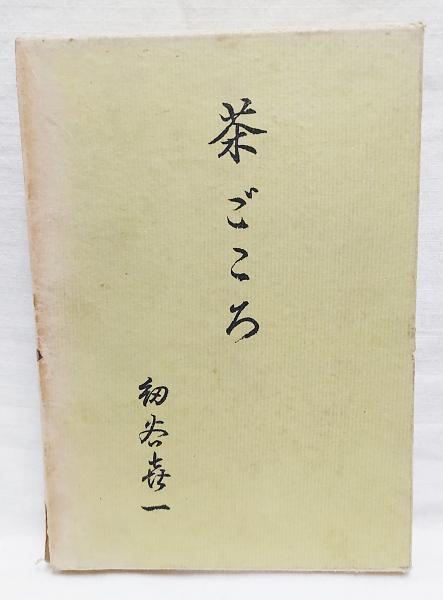 茶ごころ
細谷喜一